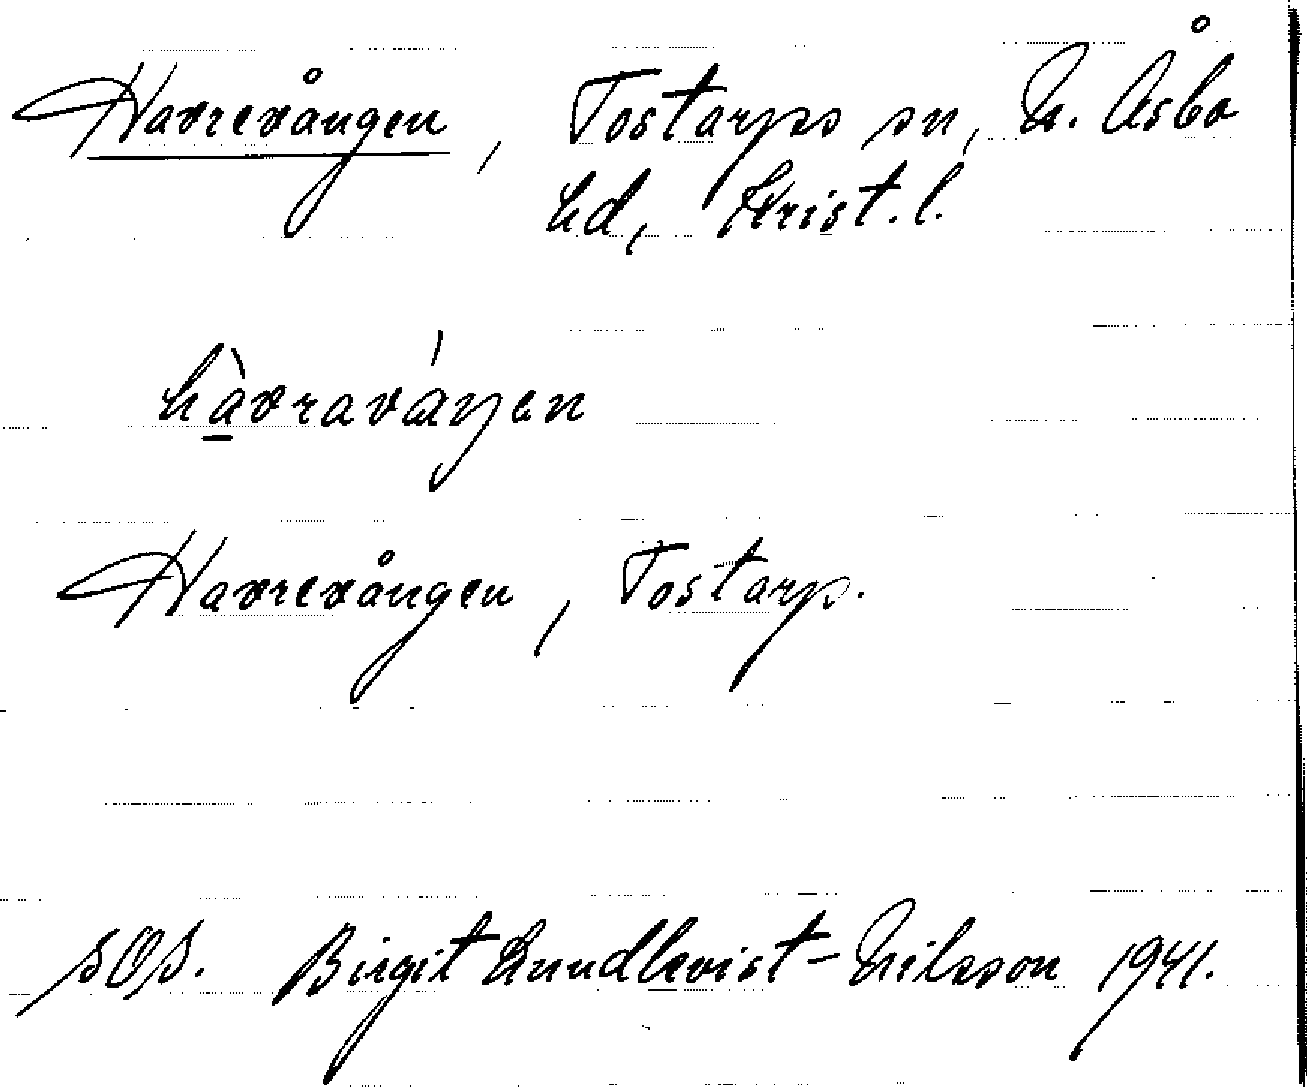 Havrevången, Tostarps sn, N. Åsbo
hd, Krist. l.
hàvraváŋen
Havrevången, Tostarp.
SOS. Birgit Lundkvist-Nilsson 1941.